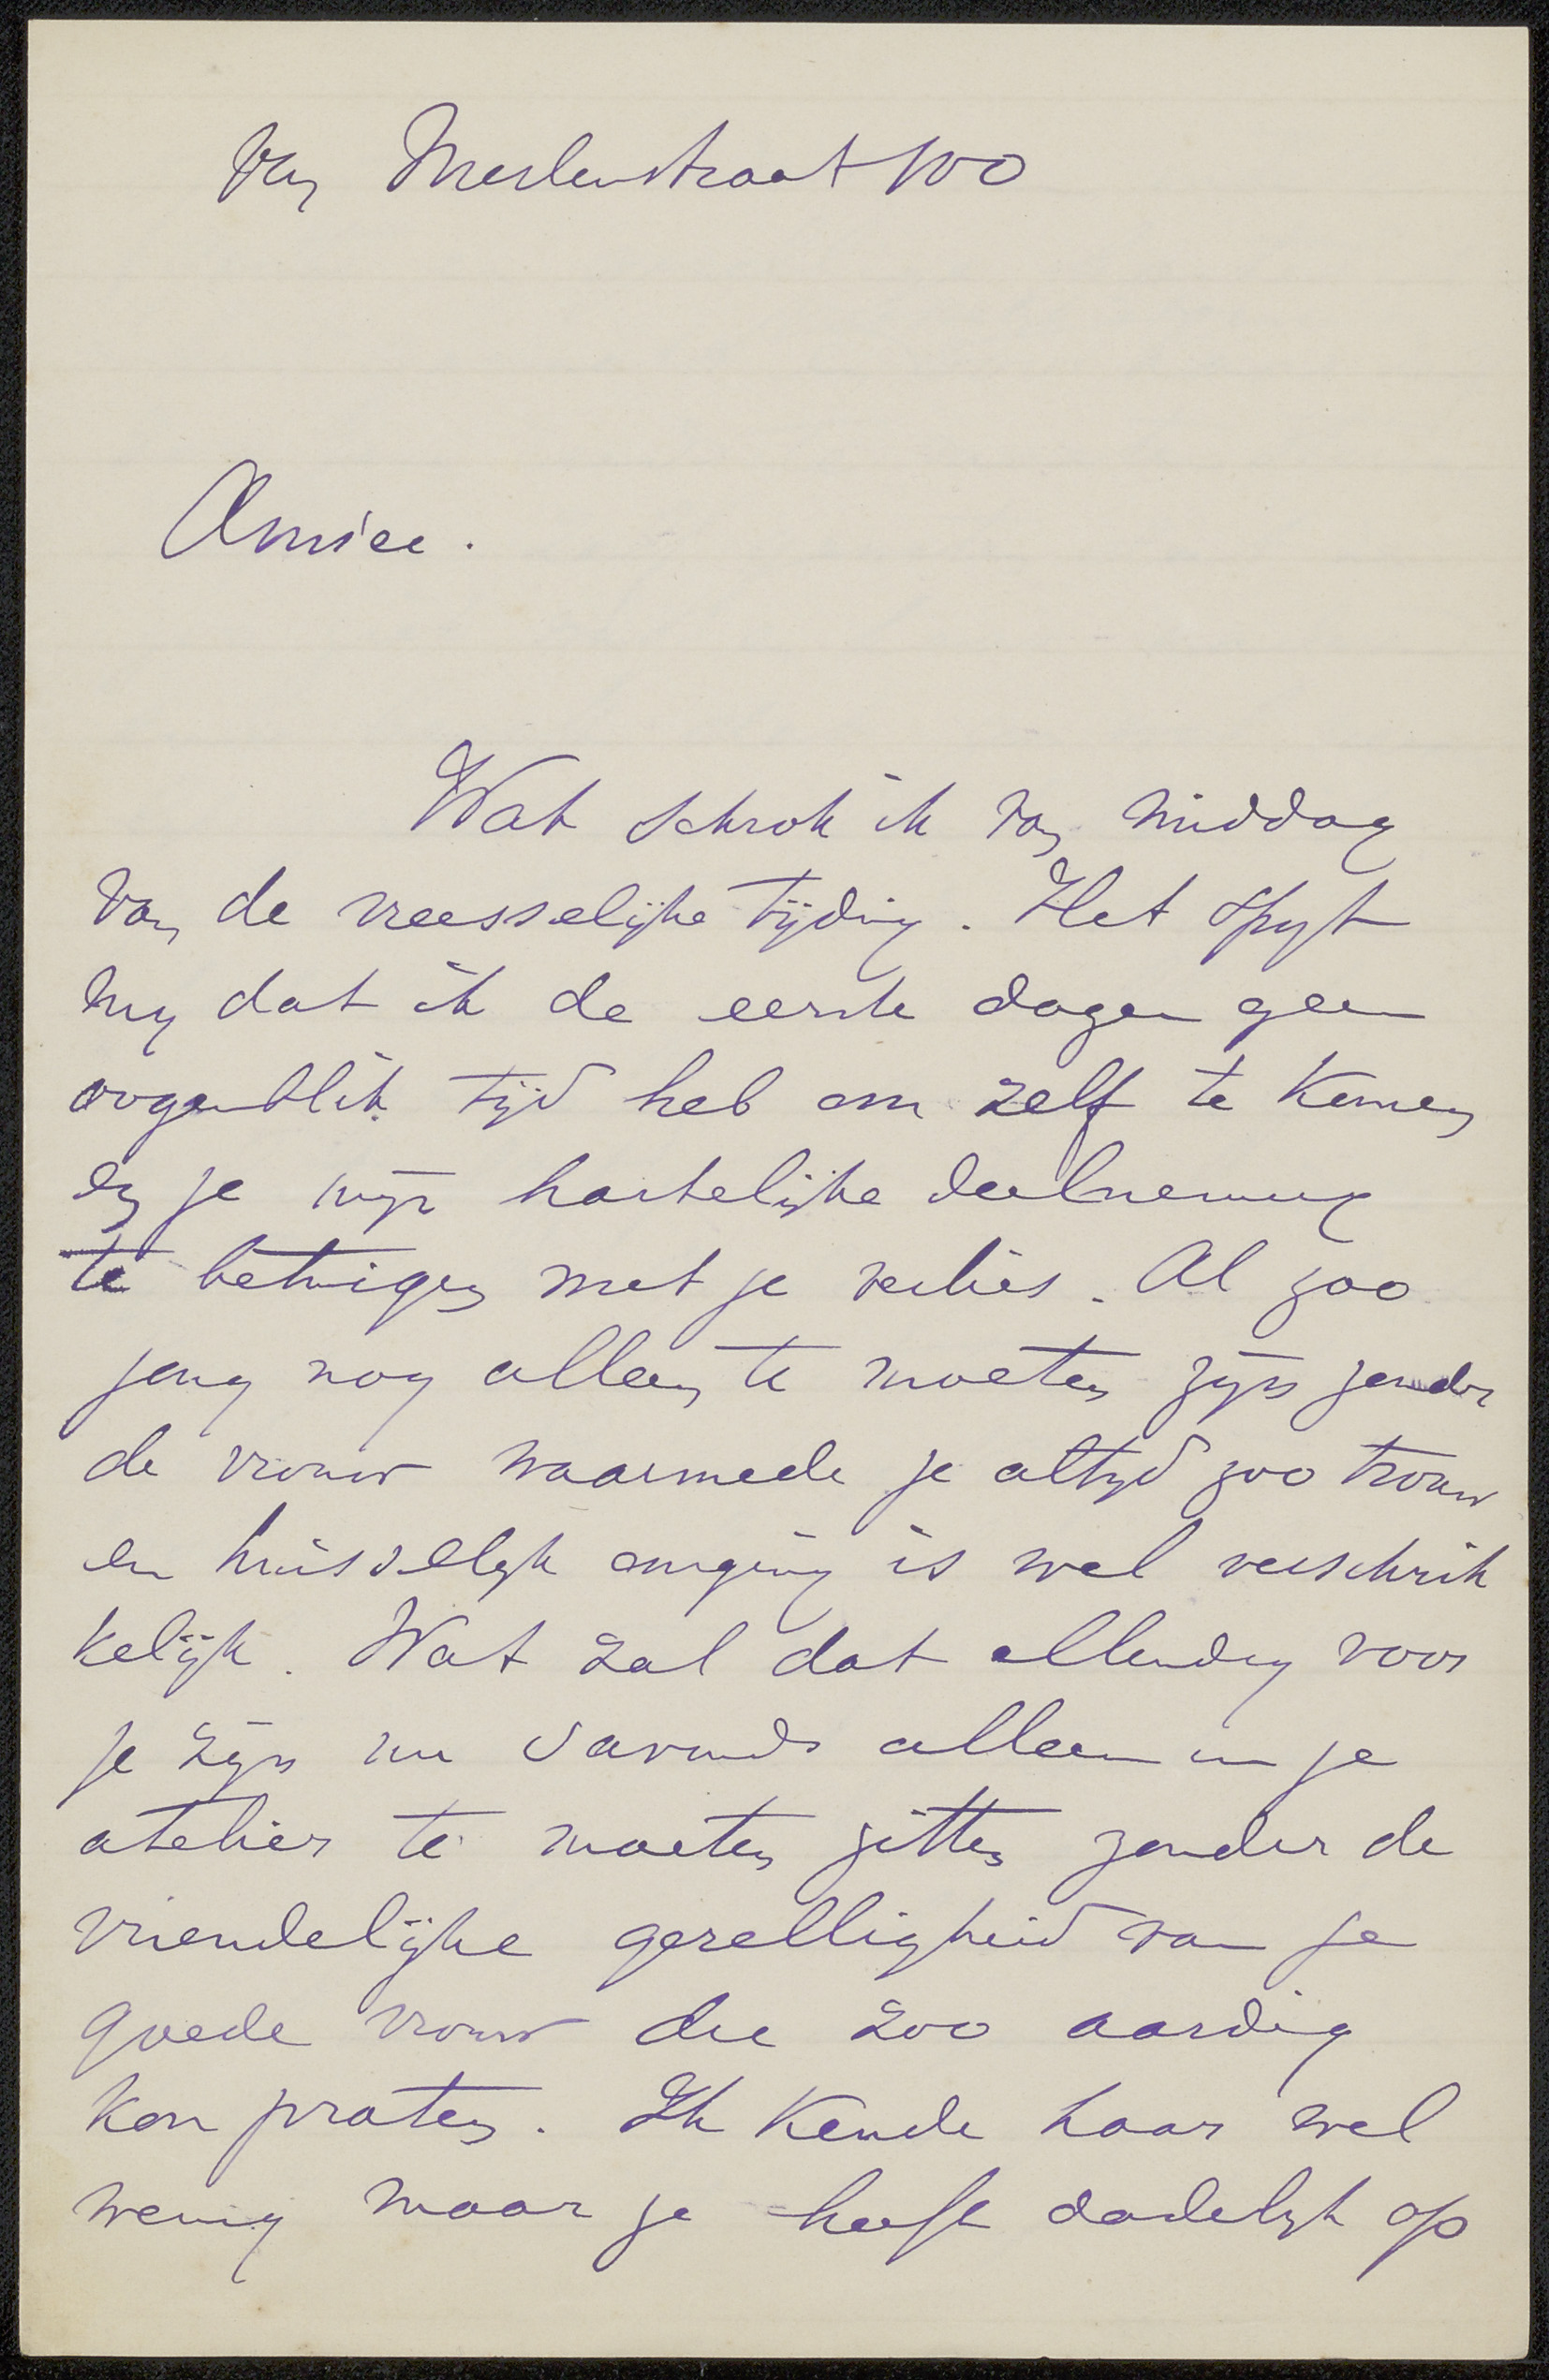 Van Merlenstraat 100
Amice.
Wat schrok ik van middag
van de vreesselijke tijding. Het spijt
mij dat ik de eerste dagen geen
oogenblik tijd heb om zelf te komen
en je mijn hartelijke deelneming
te betuigen met je verlies. Al zoo
jong nog alleen te moeten zijn zonder
de vrouw waarmede je altijd zoo trouw
en huisselijk omging is wel verschrik
kelijk. Wat zal dat ellendig voor
je zijn nu s'avonds alleen in je
atelier te moeten zitten zonder de
vriendelijke gezelligheid van je
goede vrouw die zoo aardig
kon praten. Ik kende haar wel
weinig maar ze heeft dadelijk op